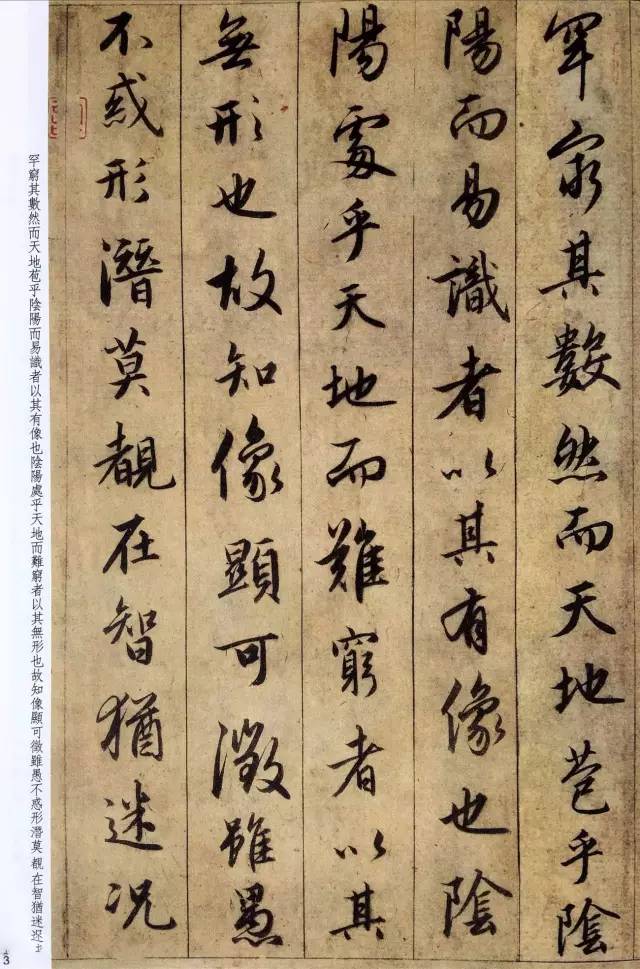 罕窮其數然而天地苞乎陰
陽而易識者以其有像也陰
陽處乎天地而難窮者以其
無形也故知像顯可徵雖愚
不惑形潛莫覩在智猶迷况
罕窮其數然而天地苞乎陰陽而易識者以其有像也陰陽處乎天地而難窮者以其無形也故知像顯可徵雖愚不惑形潛莫覩在智猶迷
3